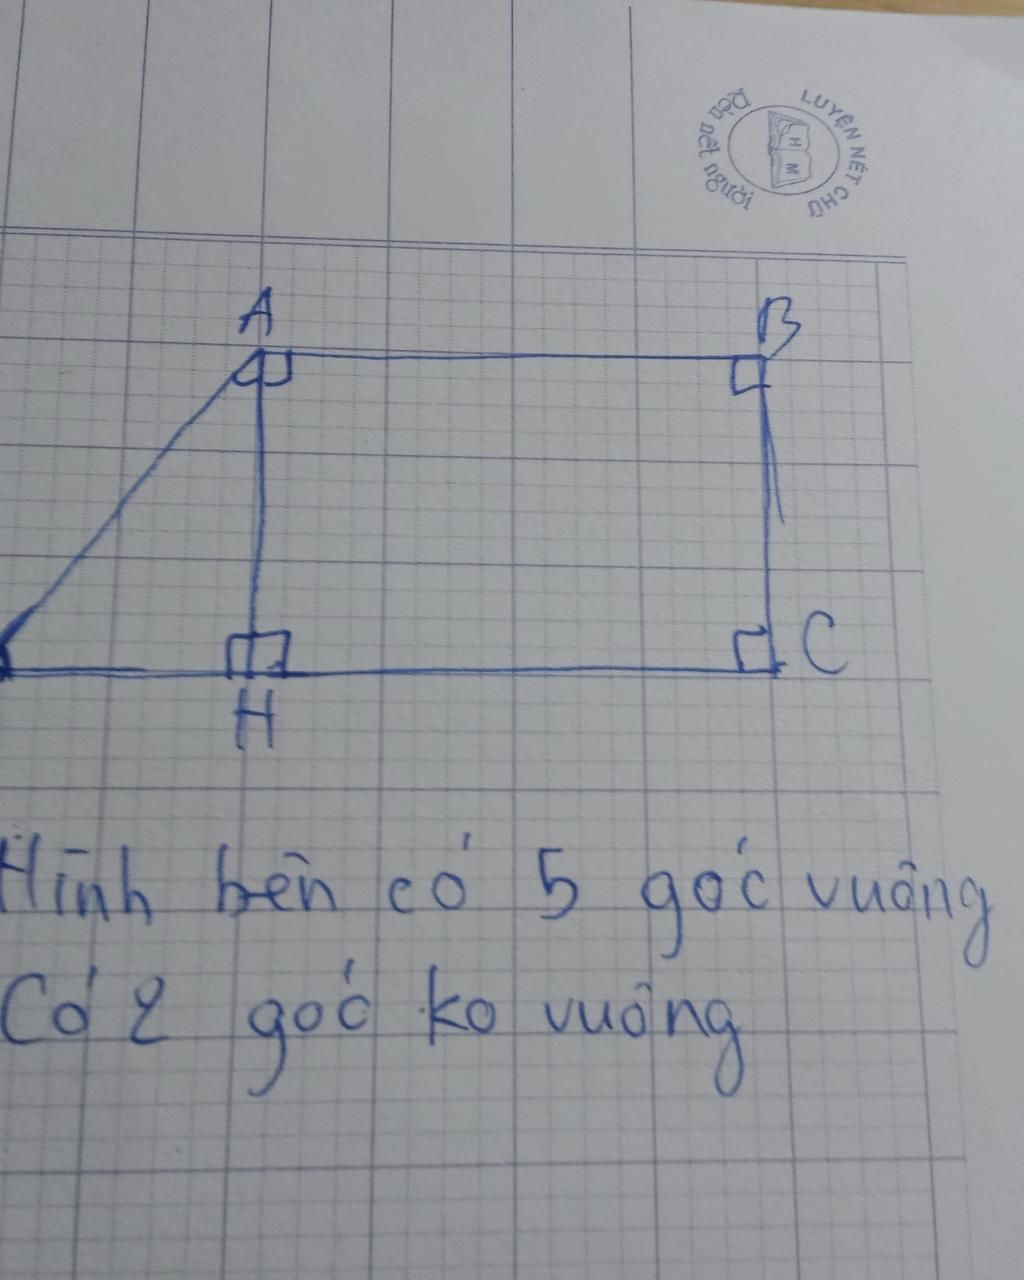 LUYỆN NÉT CHỮ
Rèn nết người
H
M
A
B
C
H
Hình bên có 5 góc vuông
Có 2 góc ko vuông